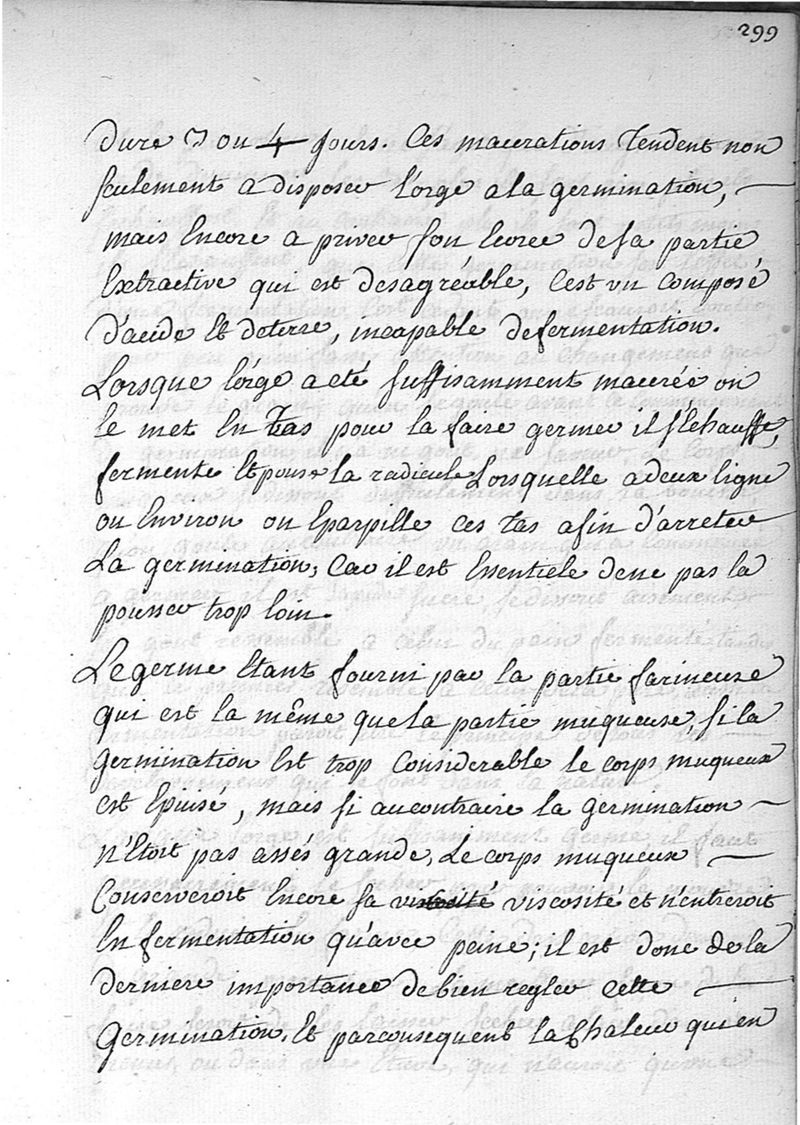 299
dure 3 ou 4 jours. Ces macerations tendent non
seulement a disposer l'orge a la germination,
mais encore a priver son ecorce de sa partie
extractive qui est desagréable, c'est un composé
d'acide et de terre, incapable de fermentation.
Lorsque l'orge a eté suffisamment macerée on
le met en tas pour la faire germer il s'echauffe,
fermente et pousse la radicule Lorsqu'elle a deux ligne
ou environ on eparpille ces tas afin d'arreter
La germination, car il est essentiele de ne pas la
pousser trop loin.
Le germe etant fourni par la partie farineuse
qui est la même que la partie muqueuse, si la
germination est trop considerable le corps muqueux
est epuisé, mais si au contraire la germination
n'etoit pas assés grande, le corps muqueux
conserveroit encore sa viscosité et n'entreroit
en fermentation qu'avec peine; il est donc de la
derniere importance de bien regler cette
Germination, et par consequent la chaleur qui en